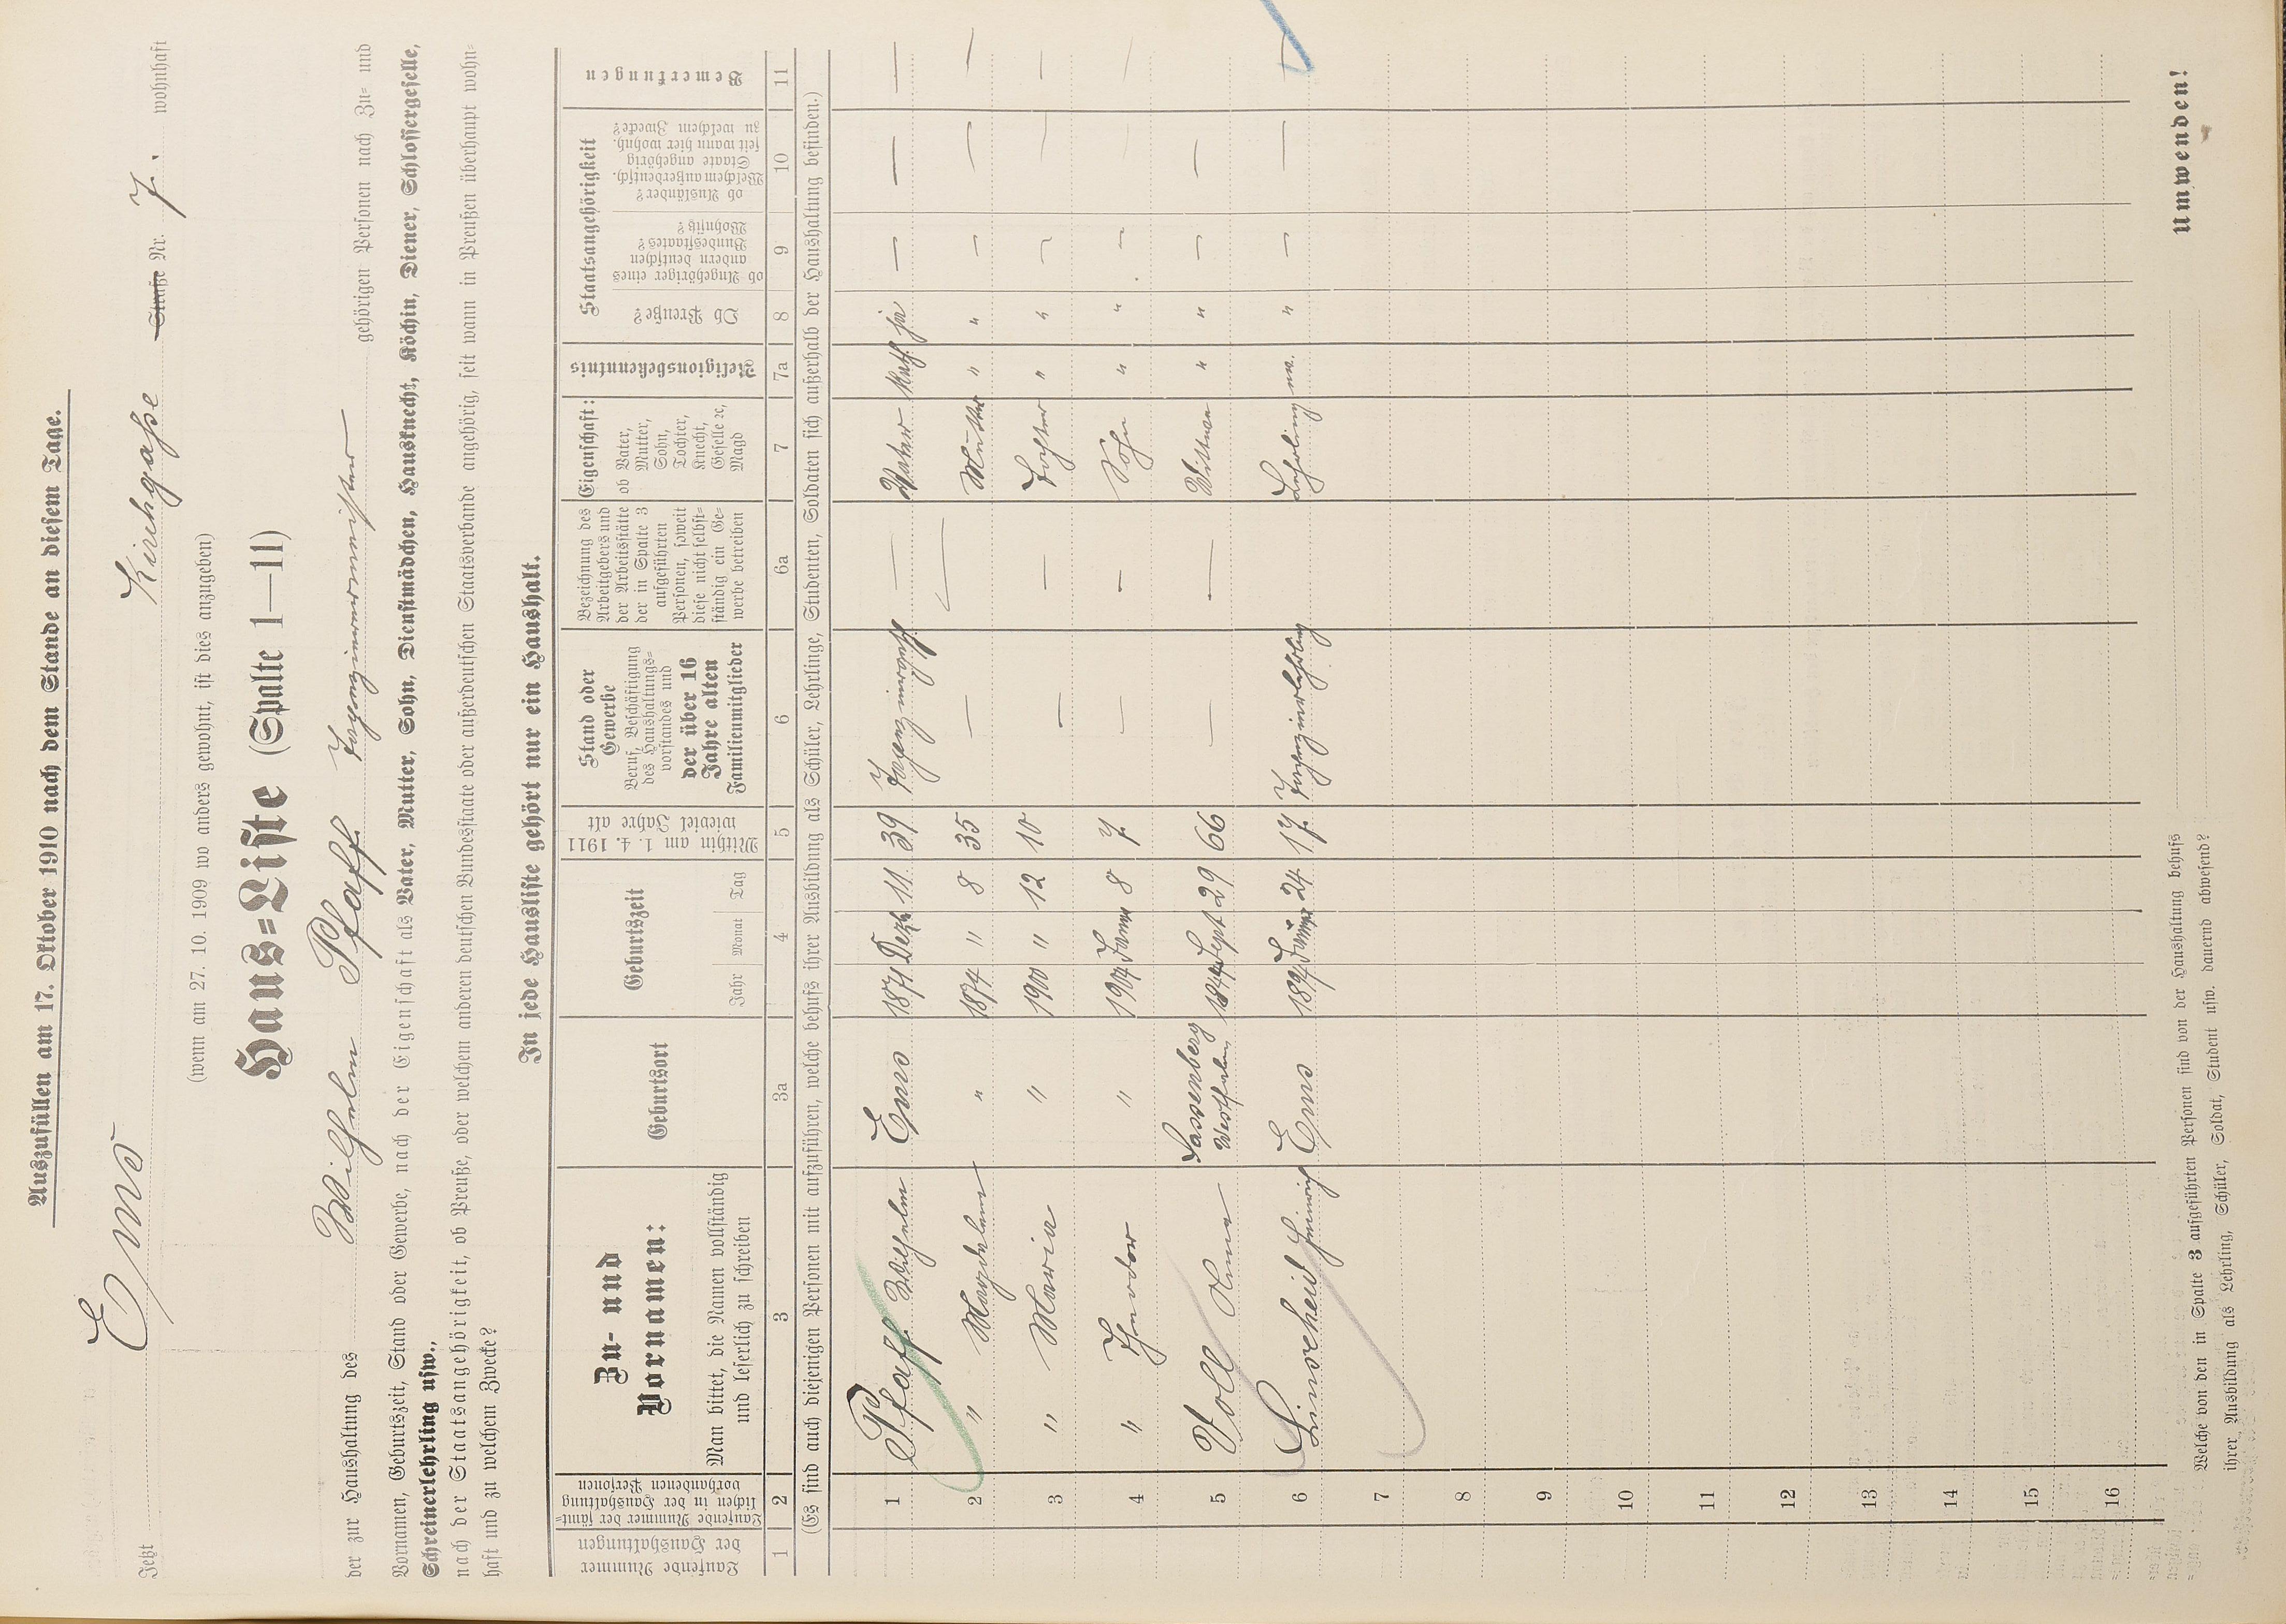 Auszufüllen am 17. Oktober 1910 nach dem Stande an diesem Tage.
Jetzt Ems Kirchgaße Straße Nr. 7. wohnhaft
(wenn am 27. 10. 1909 wo anders gewohnt, ist dies anzugeben)
Haus=Liste (Spalte 1—11)
der zur Haushaltung des Wilhelm Pfaff gehörigen Personen nach Zu= und
Vornamen, Geburtszeit, Stand oder Gewerbe, nach der Eigenschaft als Vater, Mutter, Sohn, Dienstmädchen, Hausknecht, Köchin, Diener, Schlossergeselle,
Schreinerlehrling usw.,
nach der Staatsangehörigkeit, ob Preuße, oder welchem anderen deutschen Bundesstaate oder außerdeutschen Staatsverbande angehörig, seit wann in Preußen überhaupt wohn=
haft und zu welchem Zwecke?
In jede Hausliste gehört nur ein Haushalt.
Laufende Nummer der Haushaltungen
Laufende Nummer der sämt=lichen in der Haushaltung vorhandenen Personen
Zu- und Vornamen:
Man bittet, die Namen vollständig und leserlich zu schreiben
Geburtsort
Geburtszeit
Jahr Monat Tag
Mithin am 1. 4. 1911 wieviel Jahre alt
Stand oder Gewerbe
Beruf, Beschäftigung des Haushaltungs=vorstandes und der über 16 Jahre alten Familienmitglieder
Bezeichnung des Arbeitgebers und der Arbeitsstätte der in Spalte 3 aufgeführten Personen, soweit diese nicht selbst=ständig ein Ge=werbe betreiben
Eigenschaft:
ob Vater, Mutter, Sohn, Tochter, Knecht, Geselle ꝛc, Magd
Religionsbekenntnis
Staatsangehörigkeit
Ob Preuße?
ob Angehöriger eines andern deutschen Bundesstaates? Wohnsitz?
ob Ausländer? Welchem außerdeutsch. Staate angehörig seit wann hier wohnh. zu welchem Zwecke?
Bemerkungen
1 2 3 3a 4 5 6 6a 7 7a 8 9 10 11
(Es sind auch diejenigen Personen mit aufzuführen, welche behufs ihrer Ausbildung als Schüler, Lehrlinge, Studenten, Soldaten sich außerhalb der Haushaltung befinden.)
1 Pfaff Wilhelm Ems 1871 Dezb 11 39 — Vater Kath ja — — —
2 " Magdalena " 1874 " 8 35 — — Mutter " " — — —
3 " Maria " 1900 " 12 10 — — Tochter " " — — —
4 " Theodor " 1904 8 7 — — Sohn " " — — —
5 Voll Anna Sassenberg Westfalen 1844 Sept 29 66 — — Wittwe " " — —
6 Linscheid Heinrich Ems 24 17 Lehrling ev. " — — —
7
8
9
10
11
12
13
14
15
16
Welche von den in Spalte 3 aufgeführten Personen sind von der Haushaltung behufs
ihrer Ausbildung als Lehrling, Schüler, Soldat, Student usw. dauernd abwesend?
umwenden!